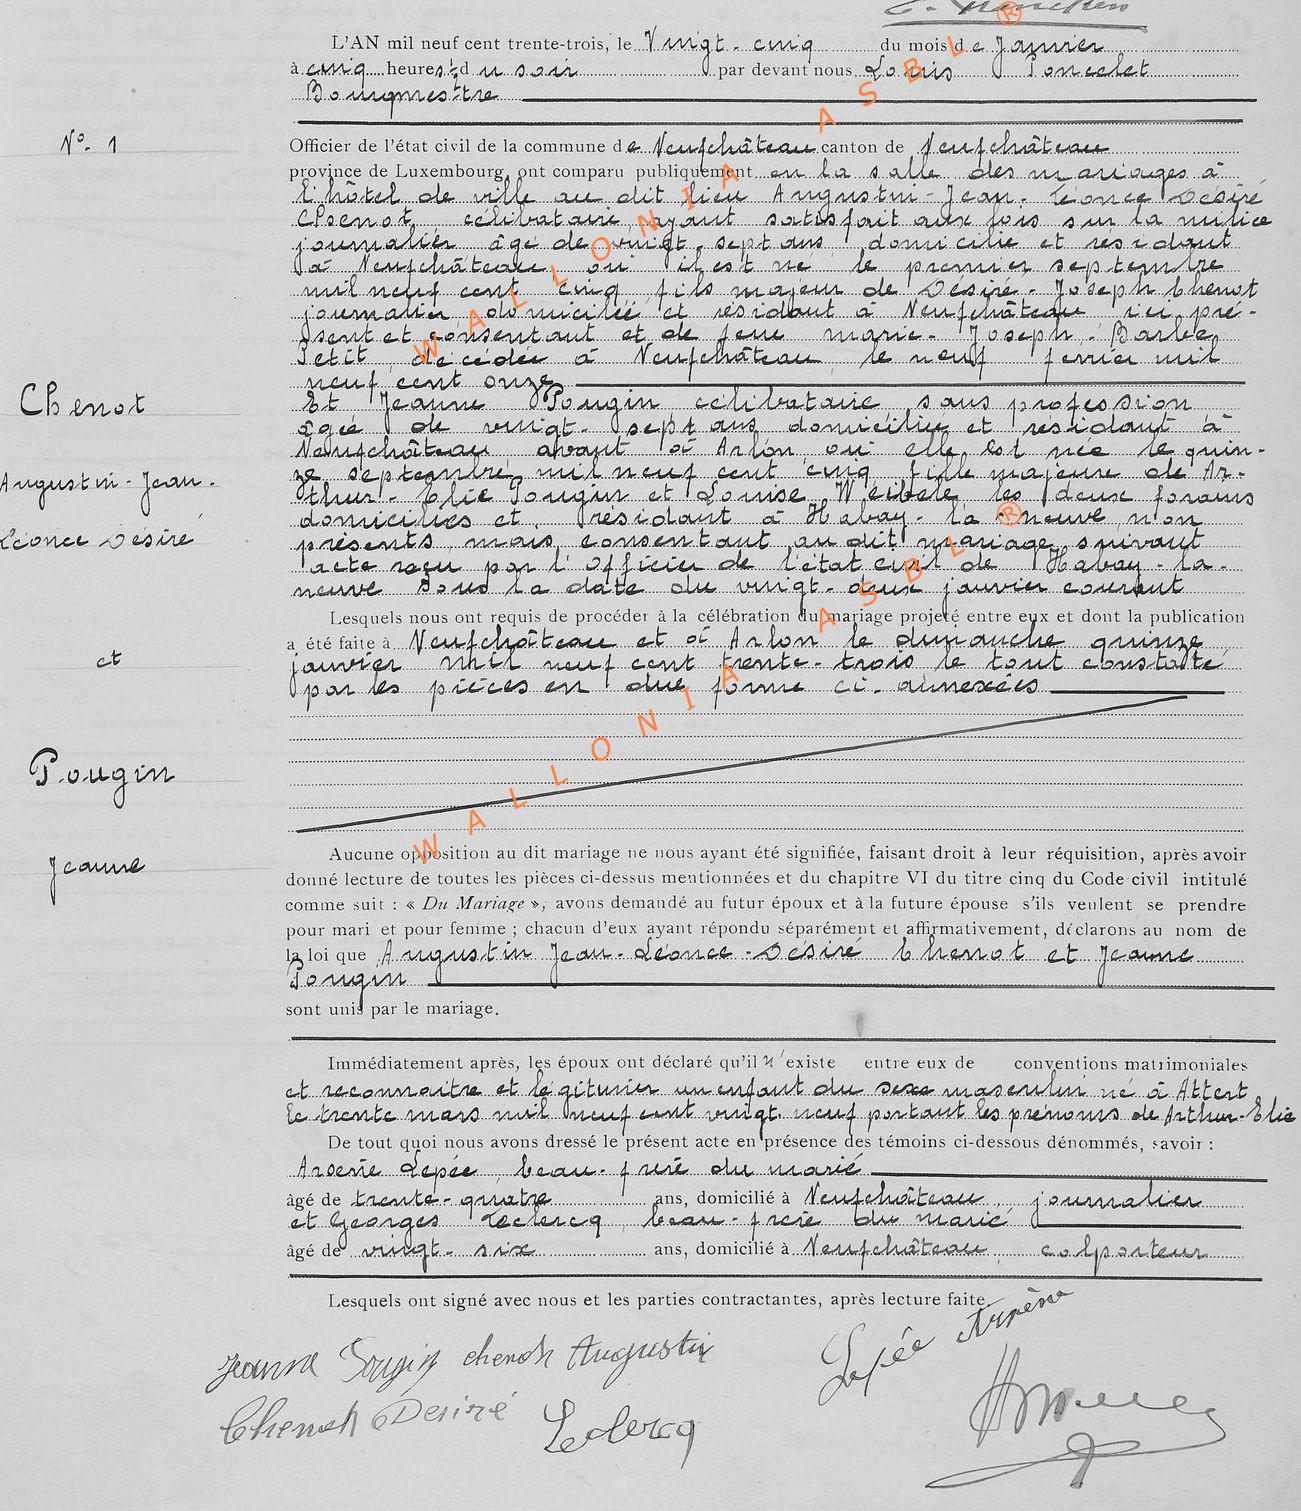 L'AN mil neuf cent trente-trois, le Vingt-cinq du mois de Janvier
à cinq heures du soir par devant nous Louis Poncelet
Bourgmestre
N° 1
Officier de l'état civil de la commune de Neufchâteau canton de Neufchâteau
province de Luxembourg, ont comparu publiquement en la salle des mariages à
l'hôtel de ville au dit lieu Augustin-Jean-Léonce Désiré
Chenot, célibataire, ayant satisfait aux lois sur la milice
journalier âgé de vingt-sept ans domicilié et résidant
à Neufchâteau où il est né le premier septembre
mil neuf cent cinq, fils majeur de Désiré-Joseph Chenot
journalier domicilié et résidant à Neufchâteau ici pré-
sent et consentant et de feue Marie-Joseph-Barbe
Petit, décédée à Neufchâteau, le neuf février mil
neuf cent onze
Chenot
Et Jeanne Pougin célibataire, sans profession
âgée de vingt-sept ans domiciliée et résidant à
Neufchâteau avant à Arlon où elle est née le quin-
ze septembre mil neuf cent cinq fille majeure de Ar-
Augustin-Jean-
thur-Elie Pougin et Louise Weibele les deux forains
domiciliés et résidant à Habay-la-neuve, non
Léonce Désiré
présents, mais consentant au dit mariage suivant
acte reçu par l'Officier de l'état civil de Habay-la-
neuve sous la date du vingt-deux janvier courant
Lesquels nous ont requis de procéder à la célébration du mariage projeté entre eux et dont la publication
a été faite à Neufchâteau et à Arlon le dimanche quinze
et
janvier mil neuf cent trente-trois le tout constaté
par les pièces en due forme ci-annexées
Pougin
Jeanne
Aucune opposition au dit mariage ne nous ayant été signifiée, faisant droit à leur réquisition, après avoir
donné lecture de toutes les pièces ci-dessus mentionnées et du chapitre VI du titre cinq du Code civil intitulé
comme suit : « Du Mariage », avons demandé au futur époux et à la future épouse s'ils veulent se prendre
pour mari et pour femme ; chacun d'eux ayant répondu séparément et affirmativement, déclarons au nom de
la loi que Augustin Jean-Léonce-Désiré Chenot et Jeanne
Pougin
sont unis par le mariage.
Immédiatement après, les époux ont déclaré qu'il n'existe entre eux de conventions matrimoniales
et reconnaitre et légitimer un enfant du sexe masculin né à Attert
le trente mars mil neuf cent vingt neuf portant les prénoms de Arthur-Elie
De tout quoi nous avons dressé le présent acte en présence des témoins ci-dessous dénommés, savoir :
Arsène Lepée, beau-frère du marié
âgé de trente-quatre ans, domicilié à Neufchâteau, journalier
et Georges Leclercq, beau-frère du marié
âgé de vingt-six ans, domicilié à Neufchâteau, colporteur
Lesquels ont signé avec nous et les parties contractantes, après lecture faite
Lepée Arsène
Jeanne Pougin chenot Augustin
Chenot Desiré Leclercq
WALLONIA ASBL ®
WALLONIA ASBL ®